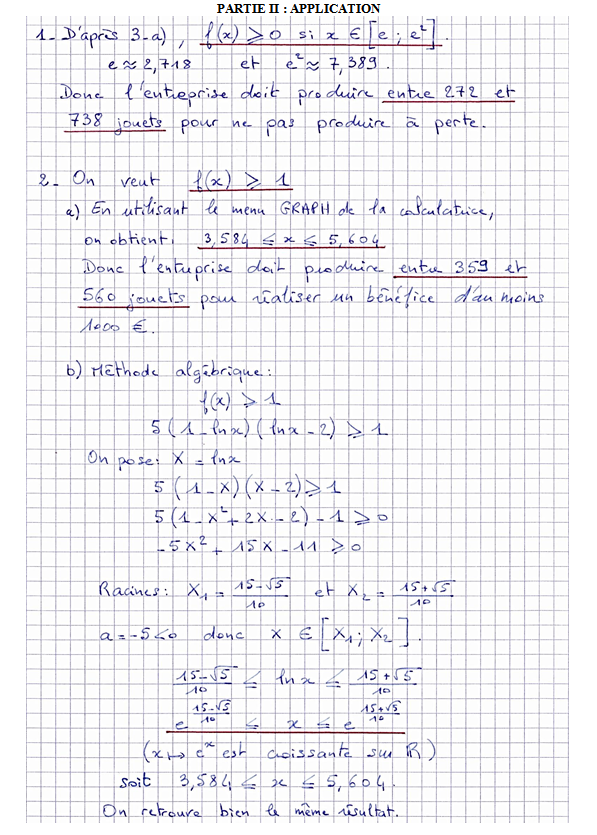 PARTIE II : APPLICATION
1- D'après 3-a), f(x) ⩾ 0 si x ∈ [e ; e²].
e ≈ 2,718 et e² ≈ 7,389.
Donc l'entreprise doit produire entre 272 et
738 jouets pour ne pas produire à perte.
2- On veut f(x) ⩾ 1
a) En utilisant le menu GRAPH de la calculatrice,
on obtient : 3,584 ≤ x ≤ 5,604
Donc l'entreprise doit produire entre 359 et
560 jouets pour réaliser un bénéfice d'au moins
1000 €.
b) Méthode algébrique :
f(x) ⩾ 1
5(1-lnx)(lnx-2) ⩾ 1
On pose : X = lnx
5(1-X)(X-2) ⩾ 1
5(1-X²+2X-2)-1 ⩾ 0
-5X² + 15X - 11 ⩾ 0
Racines : X₁ = (15-√5)/10 et X₂ = (15+√5)/10
a = -5 < 0 donc X ∈ [X₁ ; X₂].
(15-√5)/10 ≤ lnx ≤ (15+√5)/10
e^((15-√5)/10) ≤ x ≤ e^((15+√5)/10)
(x ↦ eˣ est croissante sur ℝ)
soit 3,584 ≤ x ≤ 5,604.
On retrouve bien le même résultat.